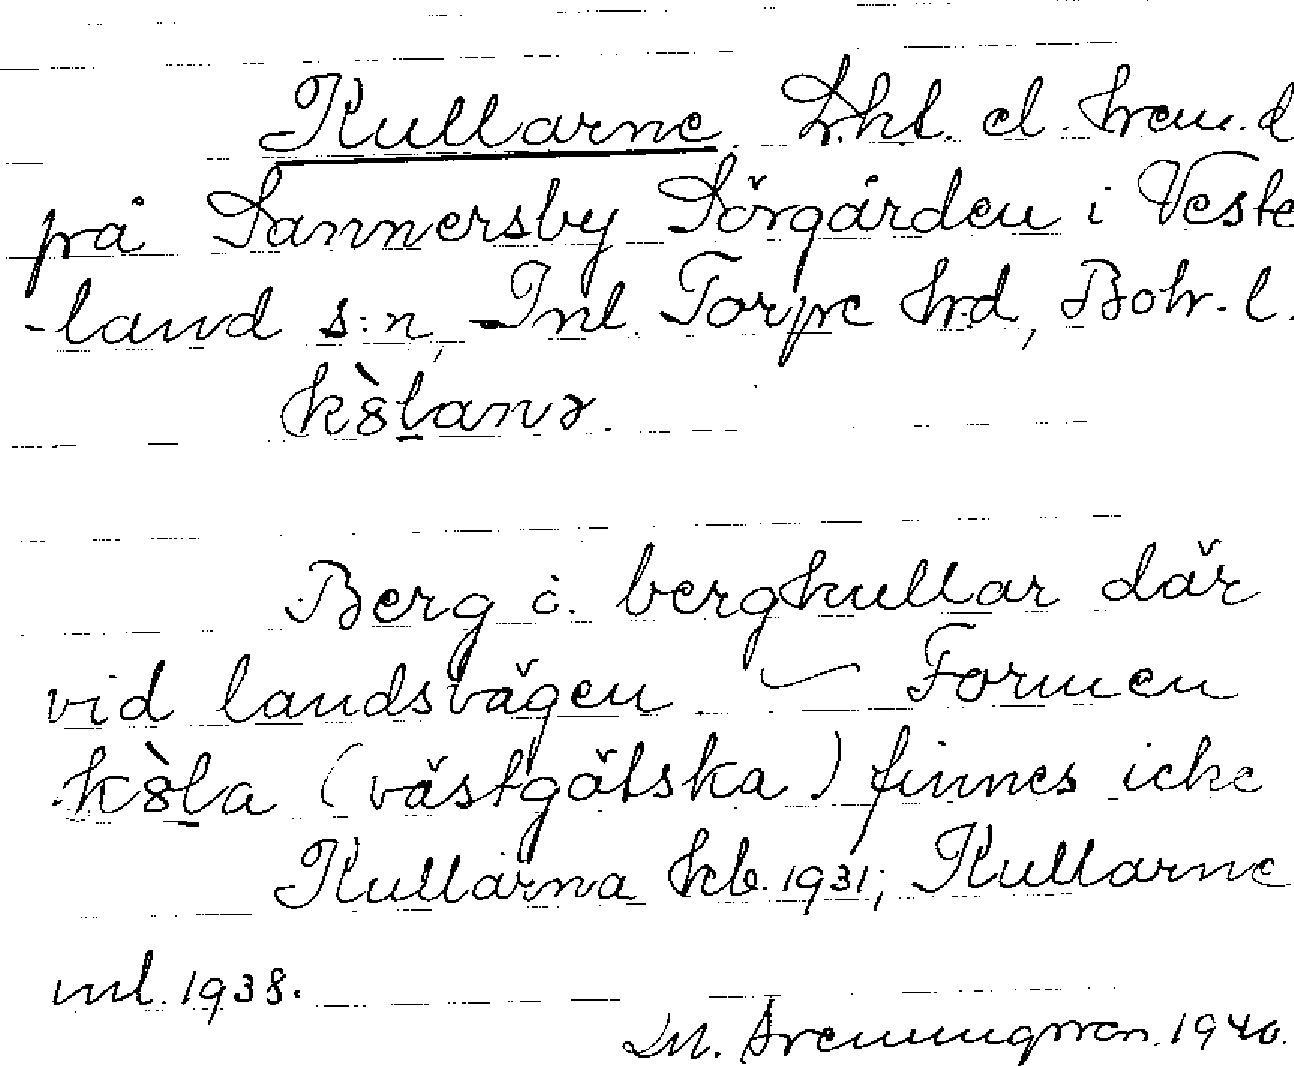 Kullarne. Lht. el. hem.d
på Sannersby Sörgården i Veste
-land s:n, Inl. Torpe hrd, Boh. l.
kòlanə.
Berg i. bergkullar där
vid landsvägen – Formen
kòla (västgötska) finnes icke
Kullarna kb. 1931; Kullarne
ml. 1938.
1940.